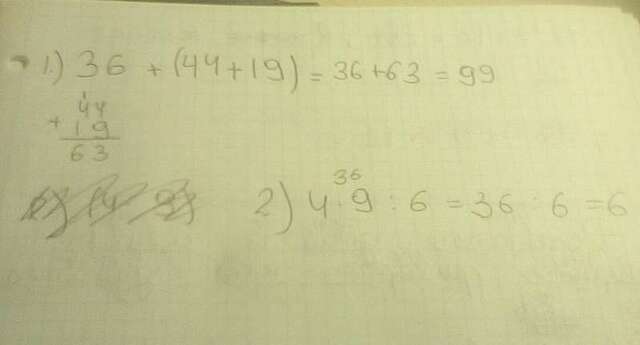 1.) 36 + (44+19) = 36+63 = 99
1
44
+ 19
63
36
2) 4·9 : 6 = 36 : 6 = 6